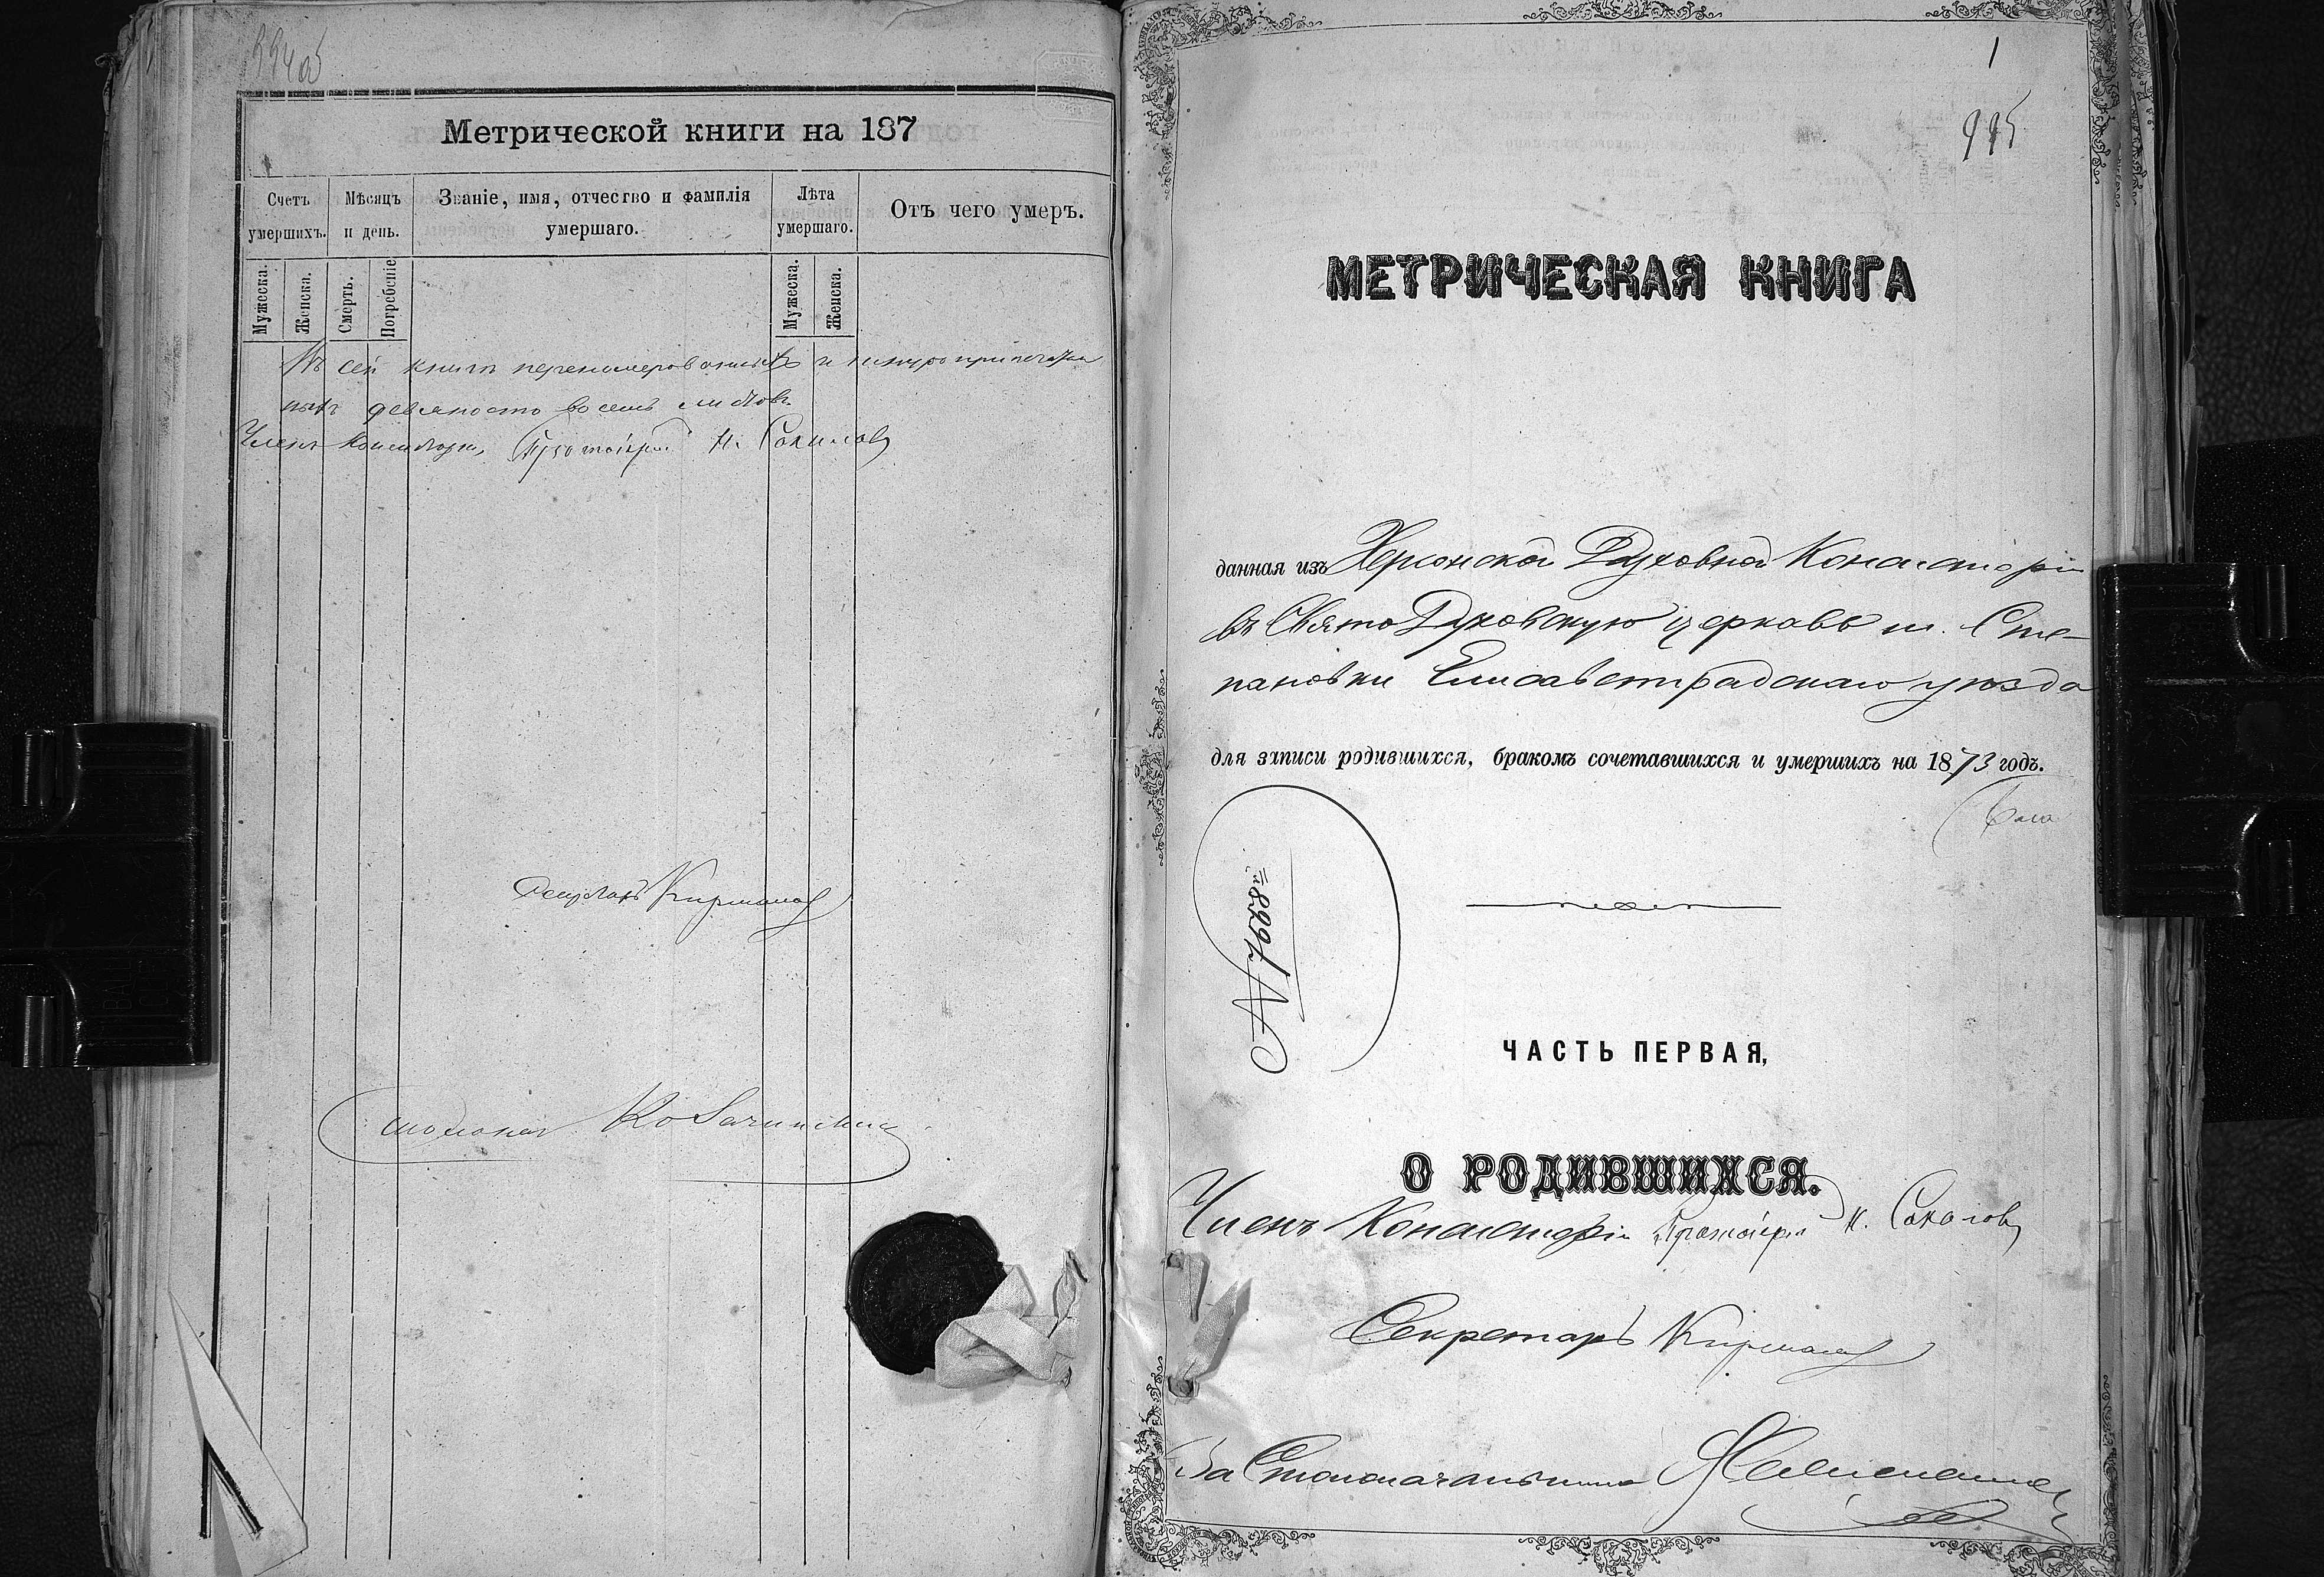 994 об
Метрической книги на 187
Счетъ умершихъ.
Мѣсяцъ и день.
Званіе, имя, отчество и фамилія умершаго.
Лѣта умершаго.
Отъ чего умеръ.
Мужеска.
Женска.
Смерть.
Погребеніе
Мужеска.
Женска.
Въ сей книгѣ перенумерованныхъ и
ныхъ девяносто восемь листовъ.
Членъ Консисторіи, Протоіерей Н. Соколовъ
Секретарь
1
995
МЕТРИЧЕСКАЯ КНИГА
данная изъ Херсонской Духовной Консисторіи
въ Свято Духовскую церковь м. Сте-
пановки Елисаветградскаго уѣзда
для записи родившихся, бракомъ сочетавшихся и умершихъ на 1873 годъ.
№ 7688
ЧАСТЬ ПЕРВАЯ,
О РОДИВШИХСЯ.
Членъ Консисторіи Протоіерей Н. Соколовъ
Секретарь
За Столоначальника